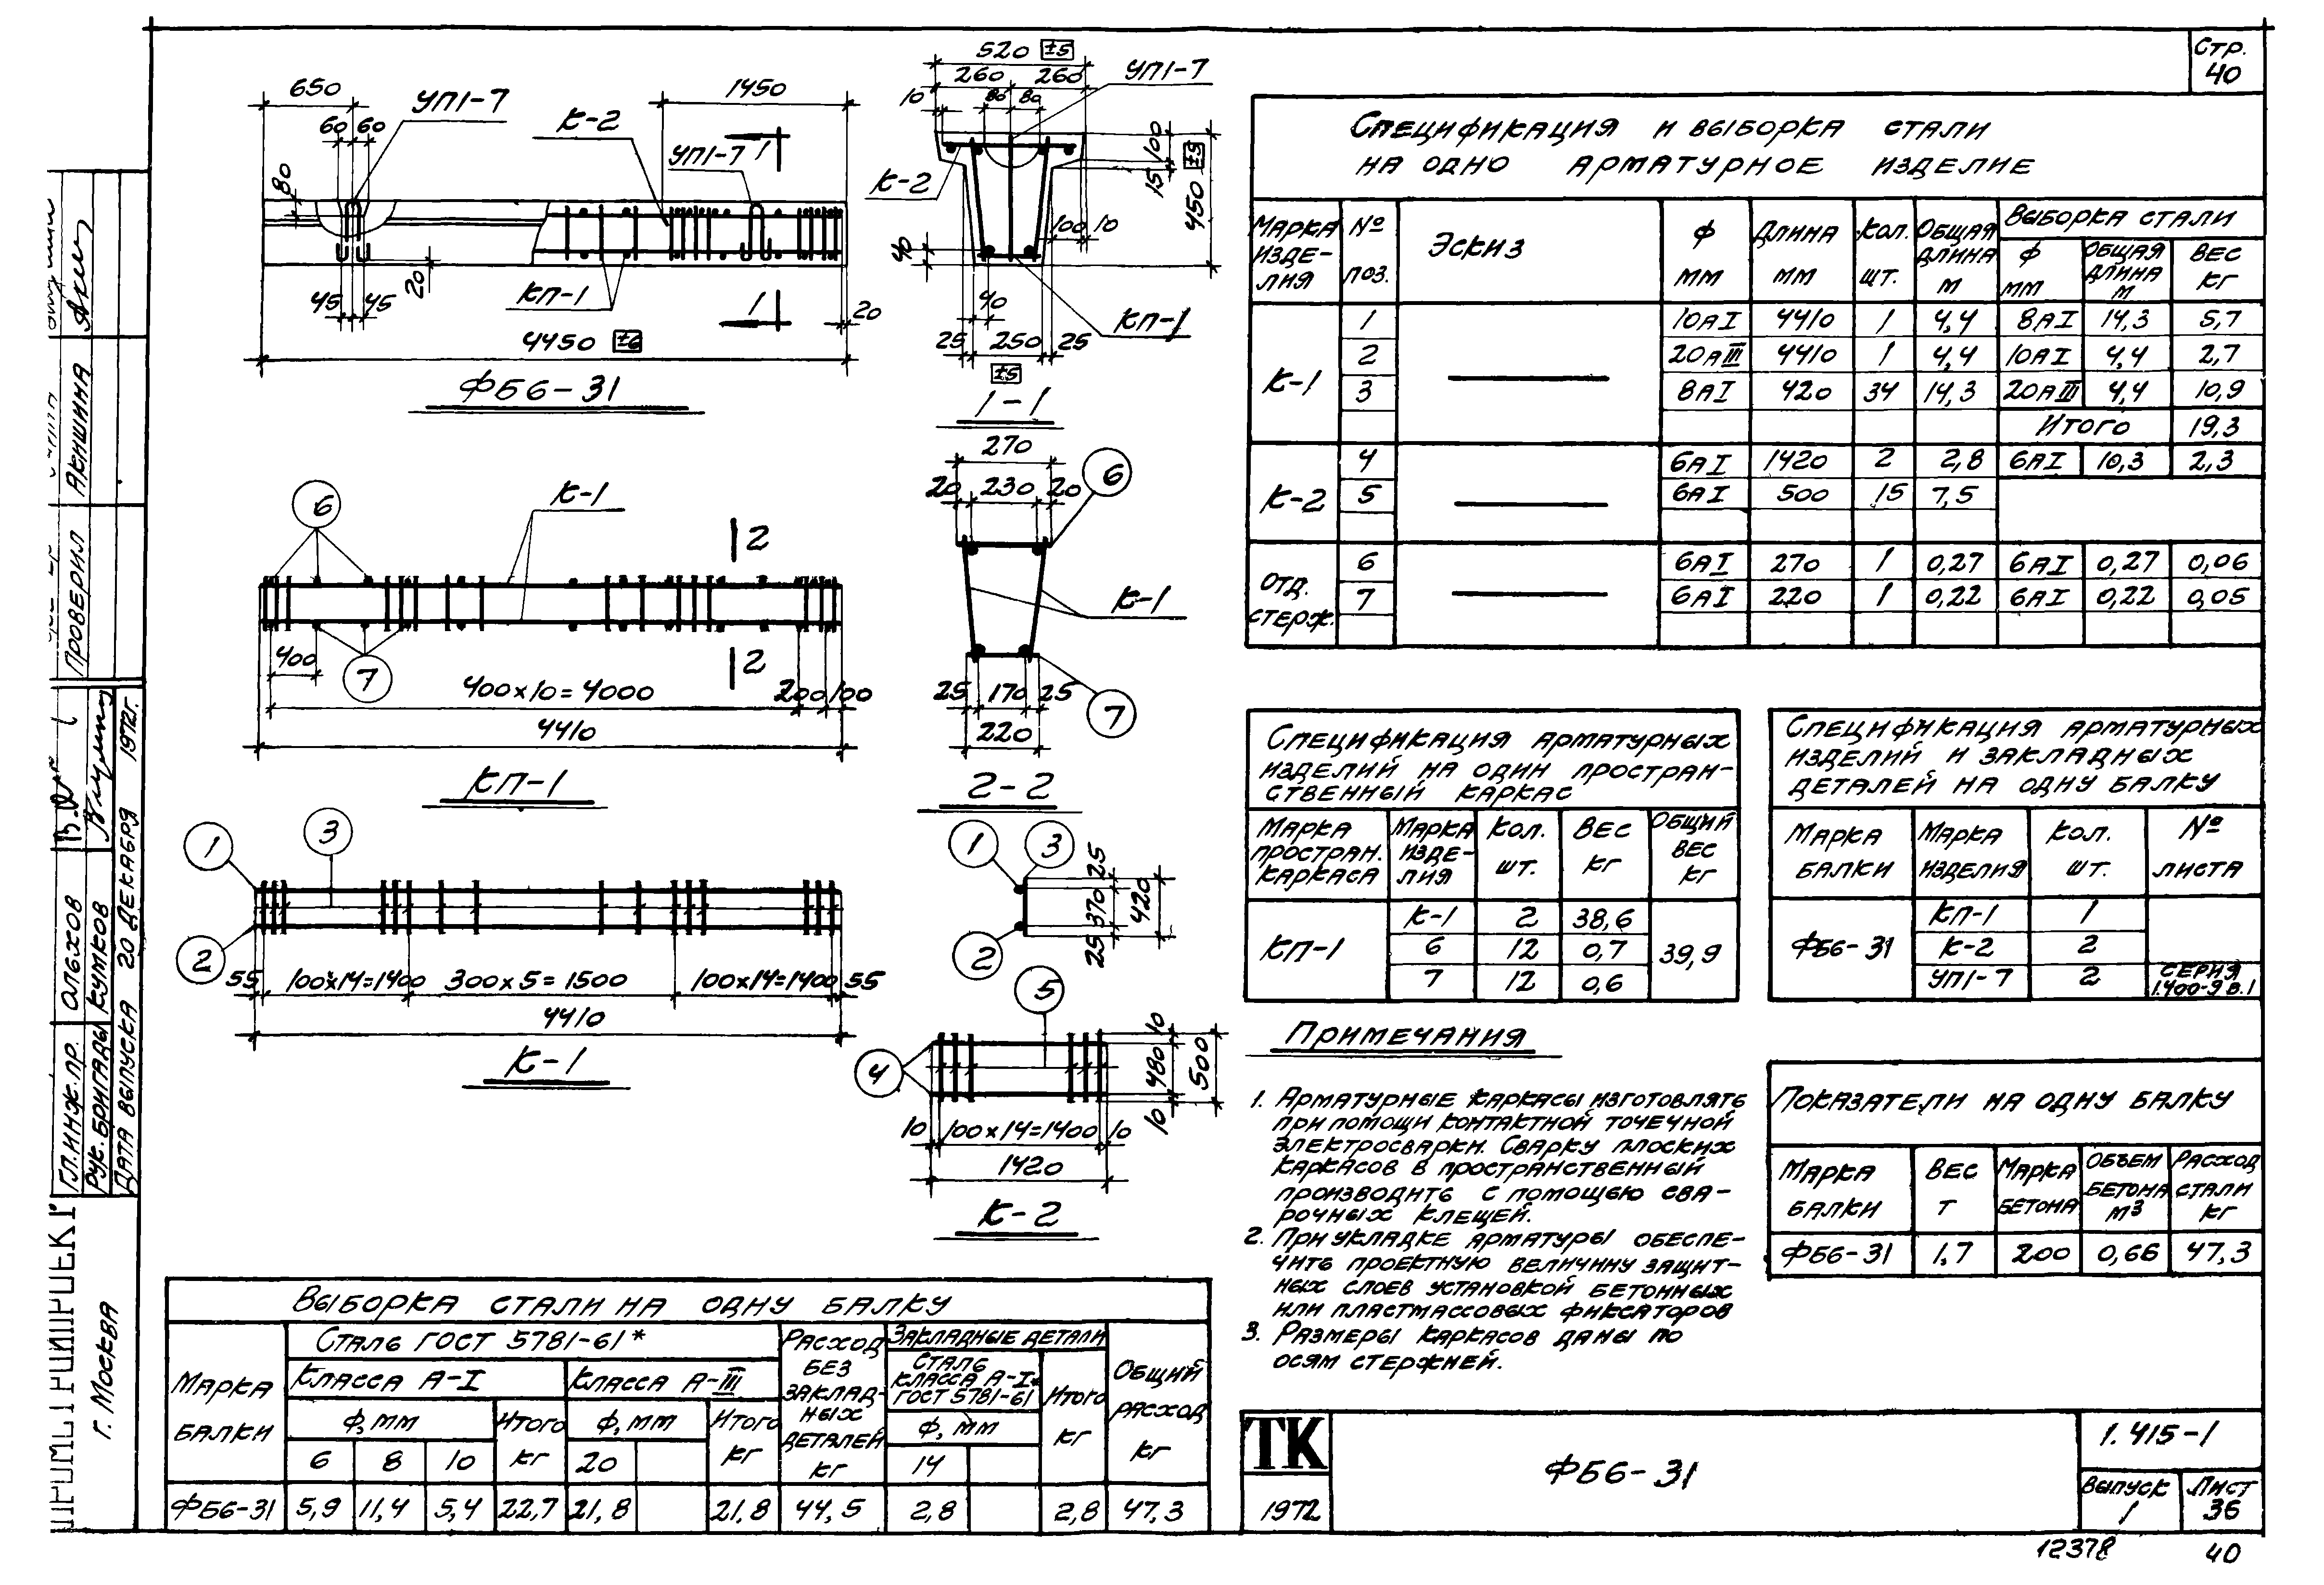 Стр.
40
650
УП1-7
К-2
1450
60 60
80
УП1-7
1
КП-1
20
45 45
1
20
4450 ±6
ФБ6-31
520 ±5
260 260
УП1-7
10
80 80
К-2
100
15
450 ±5
100 10
40
40
КП-1
25 250 25
±5
1-1
6
К-1
2
400
7
2
400х10=4000
200 100
4410
КП-1
270
20 230 20
6
К-1
25 170 25
220
7
2-2
1
3
2
55
100х14=1400
300х5=1500
100х14=1400
55
4410
К-1
1
3
2
25
370
25
420
5
4
10
480
10
500
10
100х14=1400
10
1420
К-2
Спецификация и выборка стали
на одно арматурное изделие
Марка изде-лия
№ поз.
Эскиз
Ф мм
Длина мм
Кол. шт.
Общая длина м
Выборка стали
Ф мм
Общая длина м
Вес кг
К-1
1 10АI 4410 1 4,4 8АI 14,3 5,7
2 20АIII 4410 1 4,4 10АI 4,4 2,7
3 8АI 420 34 14,3 20АIII 4,4 10,9
Итого 19,3
К-2
4 6АI 1420 2 2,8 6АI 10,3 2,3
5 6АI 500 15 7,5
Отд. стерж.
6 6АI 270 1 0,27 6АI 0,27 0,06
7 6АI 220 1 0,22 6АI 0,22 0,05
Спецификация арматурных
изделий на один простран-
ственный каркас
Марка простран. каркаса
Марка изде-лия
Кол. шт.
Вес кг
Общий вес кг
КП-1
К-1 2 38,6
6 12 0,7
7 12 0,6
39,9
Спецификация арматурных
изделий и закладных
деталей на одну балку
Марка балки
Марка изделия
Кол. шт.
№ листа
ФБ6-31
КП-1 1
К-2 2
УП1-7 2 Серия 1.400-9 в.1
Примечания
1. Арматурные каркасы изготовлять
при помощи контактной точечной
электросварки. Сварку плоских
каркасов в пространственный
производить с помощью сва-
рочных клещей.
2. При укладке арматуры обеспе-
чить проектную величину защит-
ных слоев установкой бетонных
или пластмассовых фиксаторов
3. Размеры каркасов даны по
осям стержней.
Показатели на одну балку
Марка балки
Вес т
Марка бетона
Объем бетона м3
Расход стали кг
ФБ6-31 1,7 200 0,66 47,3
Выборка стали на одну балку
Марка балки
Сталь ГОСТ 5781-61*
Класса А-I
Класса А-III
Ф, мм
Итого кг
Ф, мм
Итого кг
6 8 10 20
Расход без заклад-ных деталей кг
Закладные детали
Сталь класса А-I* ГОСТ 5781-61
Ф, мм
14
Итого кг
Общий расход кг
ФБ6-31 5,9 11,4 5,4 22,7 21,8 21,8 44,5 2,8 2,8 47,3
ТК
1972
ФБ6-31
1.415-1
Выпуск
1
Лист
36
12378
40
Проверил
Акишина
Гл.инж.пр.
Ольхов
Рук.бригады
Кутиков
Дата выпуска 20 декабря 1972г.
г. Москва